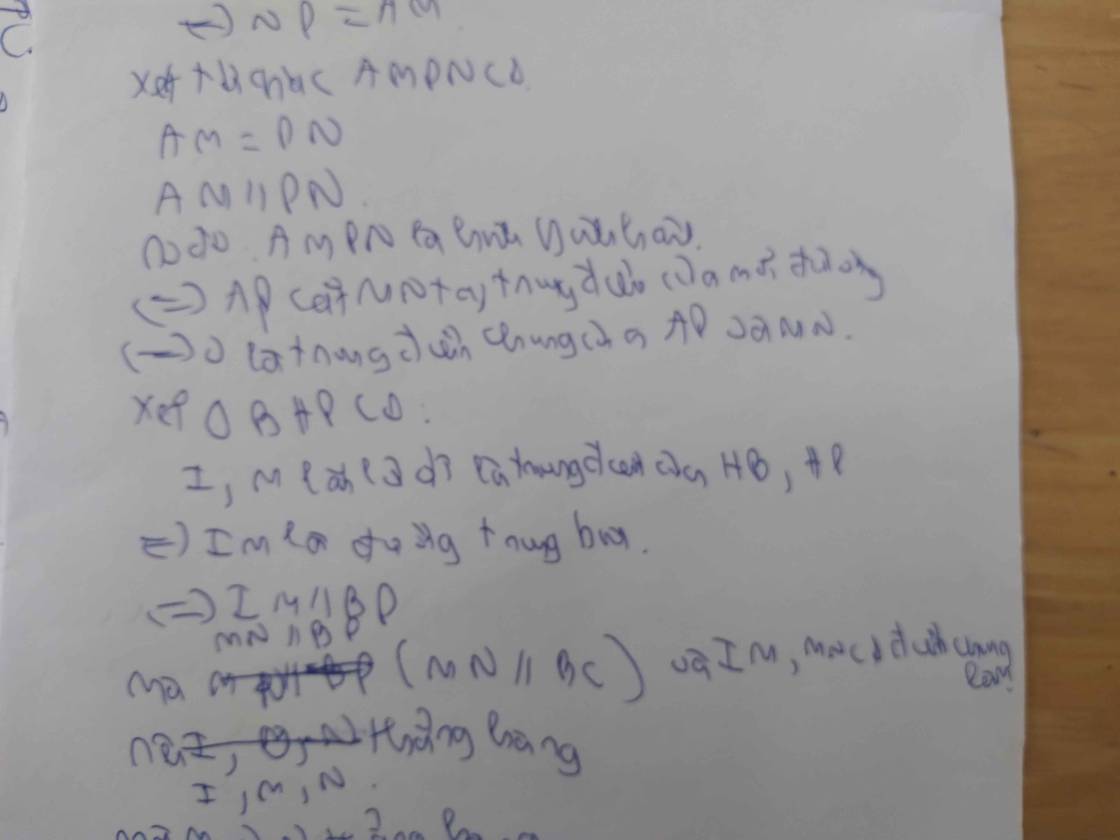 <=> NP = AM
Xét tứ giác AMPN Có
AM = PN
AM // PN.
Do đó AMPN là hình bình hành.
<=> AP cắt MN tại trung điểm của mỗi đường
<=> O là trung điểm chung của AP và MN.
Xét △ BHP Có:
I, M lần lượt là trung điểm của HB, HP
=> IM là đường trung bình.
<=> IM // BP
MN // BP
mà (MN // BC) và IM, MN có điểm chung
là M
nên thẳng hàng
I, M, N.